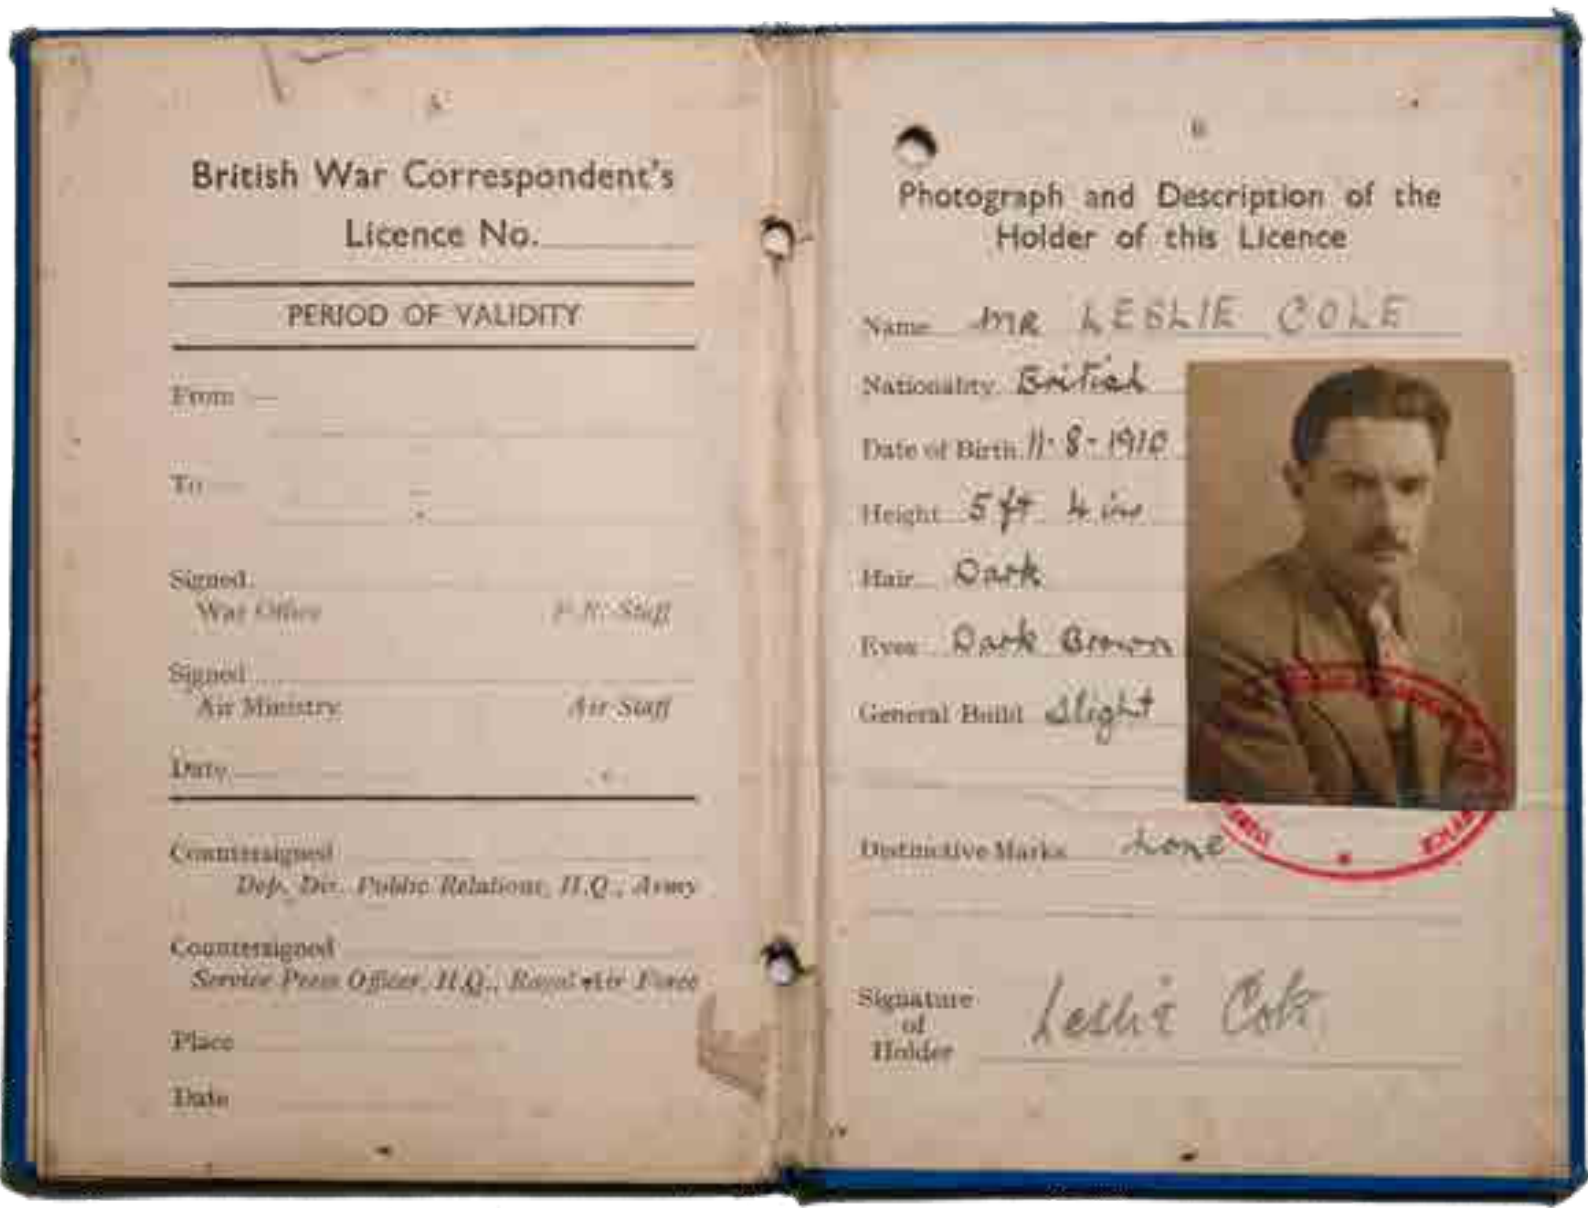 British War Correspondent's
Licence No.
PERIOD OF VALIDITY
From
To
Signed
War Office P.R. Staff
Signed
Air Ministry Air Staff
Date
Countersigned
Dep. Dir. Public Relations, H.Q., Army
Countersigned
Service Press Officer, H.Q., Royal Air Force
Place
Date
Photograph and Description of the
Holder of this Licence
Name MR LESLIE COLE
Nationality British
Date of Birth 11-8-1910
Height 5 ft 4 ins
Hair Dark
Eyes Dark Brown
General Build Slight
Distinctive Marks None
Signature
of
Holder
Leslie Cole